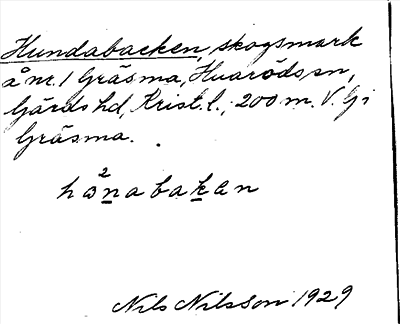 Hundabacken, skogsmark
å nr. 1 Gräsma, Huaröds sn,
Gärds hd, Krist. l., 200 m. V. Gi
Gräsma.
2
hɷnabakan
Nils Nilsson 1929